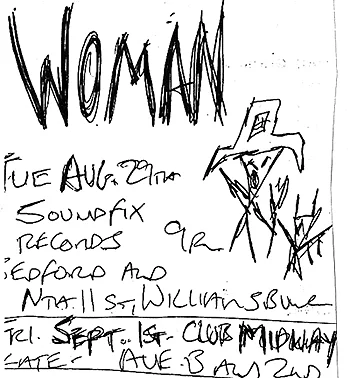 WOMAN
TUE AUG. 29TH
SOUNDFIX
RECORDS 9PM
BEDFORD AND
NTH 11 ST, WILLIAMSBURG
FRI. SEPT. 1ST. CLUB MIDWAY
LATE - AVE. B AND 2ND